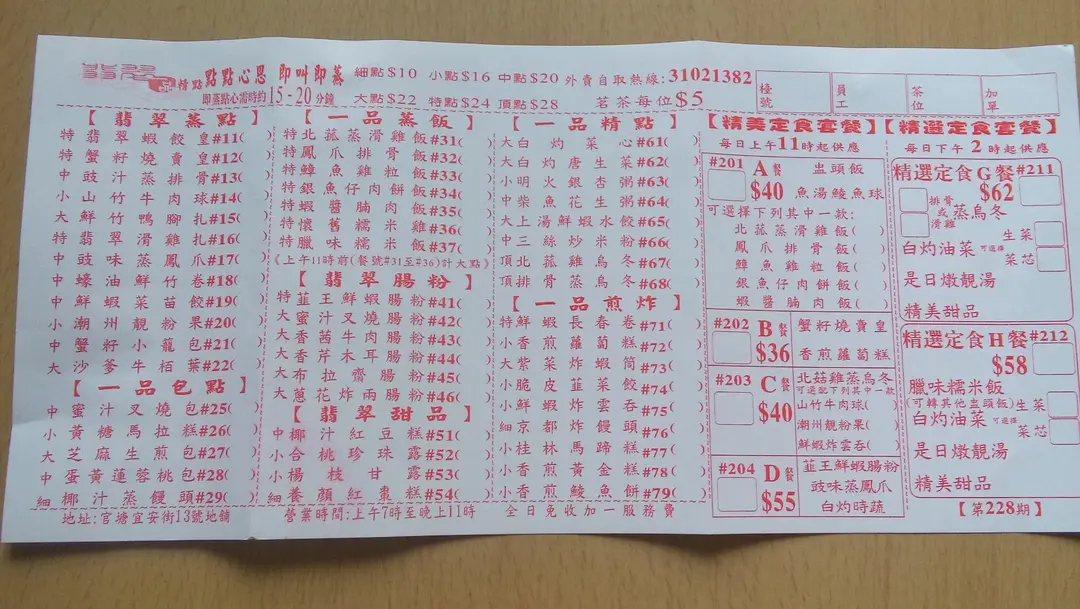 翡翠
精點 點點心思 即叫即蒸
即蒸點心需時約15-20分鐘
細點$10 小點$16 中點$20 外賣自取熱線:31021382
大點$22 特點$24 頂點$28 茗茶每位$5
檯號
員工
茶位
加單
【翡翠蒸點】
特翡翠蝦餃皇#11( )
特蟹籽燒賣皇#12( )
中豉汁蒸排骨#13( )
小山竹牛肉球#14( )
大鮮竹鴨腳扎#15( )
特翡翠滑雞扎#16( )
中豉味蒸鳳爪#17( )
中蠔油鮮竹卷#18( )
中鮮蝦菜苗餃#19( )
小潮州靚粉果#20( )
中蟹籽小籠包#21( )
大沙爹牛栢葉#22( )
【一品包點】
中蜜汁叉燒包#25( )
小黃糖馬拉糕#26( )
大芝麻生煎包#27( )
中蛋黃蓮蓉桃包#28( )
細椰汁蒸饅頭#29( )
【一品蒸飯】
特北菰蒸滑雞飯#31( )
特鳳爪排骨飯#32( )
特鱆魚雞粒飯#33( )
特銀魚仔肉餅飯#34( )
特蝦醬腩肉飯#35( )
特懷舊糯米雞#36( )
特臘味糯米飯#37( )
《上午11時前(餐號#31至#36)計大點》
【翡翠腸粉】
特韮王鮮蝦腸粉#41( )
大蜜汁叉燒腸粉#42( )
大香茜牛肉腸粉#43( )
大香芹木耳腸粉#44( )
大布拉齋腸粉#45( )
大蔥花炸兩腸粉#46( )
【翡翠甜品】
中椰汁紅豆糕#51( )
小合桃珍珠露#52( )
小楊枝甘露#53( )
細養顏紅棗糕#54( )
【一品精點】
大白灼菜心#61( )
大白灼唐生菜#62( )
小明火銀杏粥#63( )
中柴魚花生粥#64( )
大上湯鮮蝦水餃#65( )
中三絲炒米粉#66( )
頂北菰雞烏冬#67( )
頂排骨蒸烏冬#68( )
【一品煎炸】
特鮮蝦長春卷#71( )
小香煎蘿蔔糕#72( )
大紫菜炸蝦筒#73( )
小脆皮韮菜餃#74( )
小鮮蝦炸雲吞#75( )
細京都炸饅頭#76( )
小桂林馬蹄糕#77( )
小香煎黃金糕#78( )
小香煎鯪魚餅#79( )
【精美定食套餐】
每日上午11時起供應
#201 A餐 $40
盅頭飯
魚湯鯪魚球
可選擇下列其中一款:
北菰蒸滑雞飯( )
鳳爪排骨飯( )
鱆魚雞粒飯( )
銀魚仔肉餅飯( )
蝦醬腩肉飯( )
#202 B餐 $36
蟹籽燒賣皇
香煎蘿蔔糕
#203 C餐 $40
北菇雞蒸烏冬
(可選配下列其中一款)
山竹牛肉球( )
潮州靚粉果( )
鮮蝦炸雲吞( )
#204 D餐 $55
韮王鮮蝦腸粉
豉味蒸鳳爪
白灼時蔬
【精選定食套餐】
每日下午2時起供應
精選定食G餐 #211
$62
排骨或滑雞 蒸烏冬
白灼油菜 可選擇 生菜 菜芯
是日燉靚湯
精美甜品
精選定食H餐 #212
$58
臘味糯米飯
(可轉其他盅頭飯)
白灼油菜 可選擇 生菜 菜芯
是日燉靚湯
精美甜品
地址:官塘宜安街13號地鋪 營業時間:上午7時至晚上11時 全日免收加一服務費
【第228期】